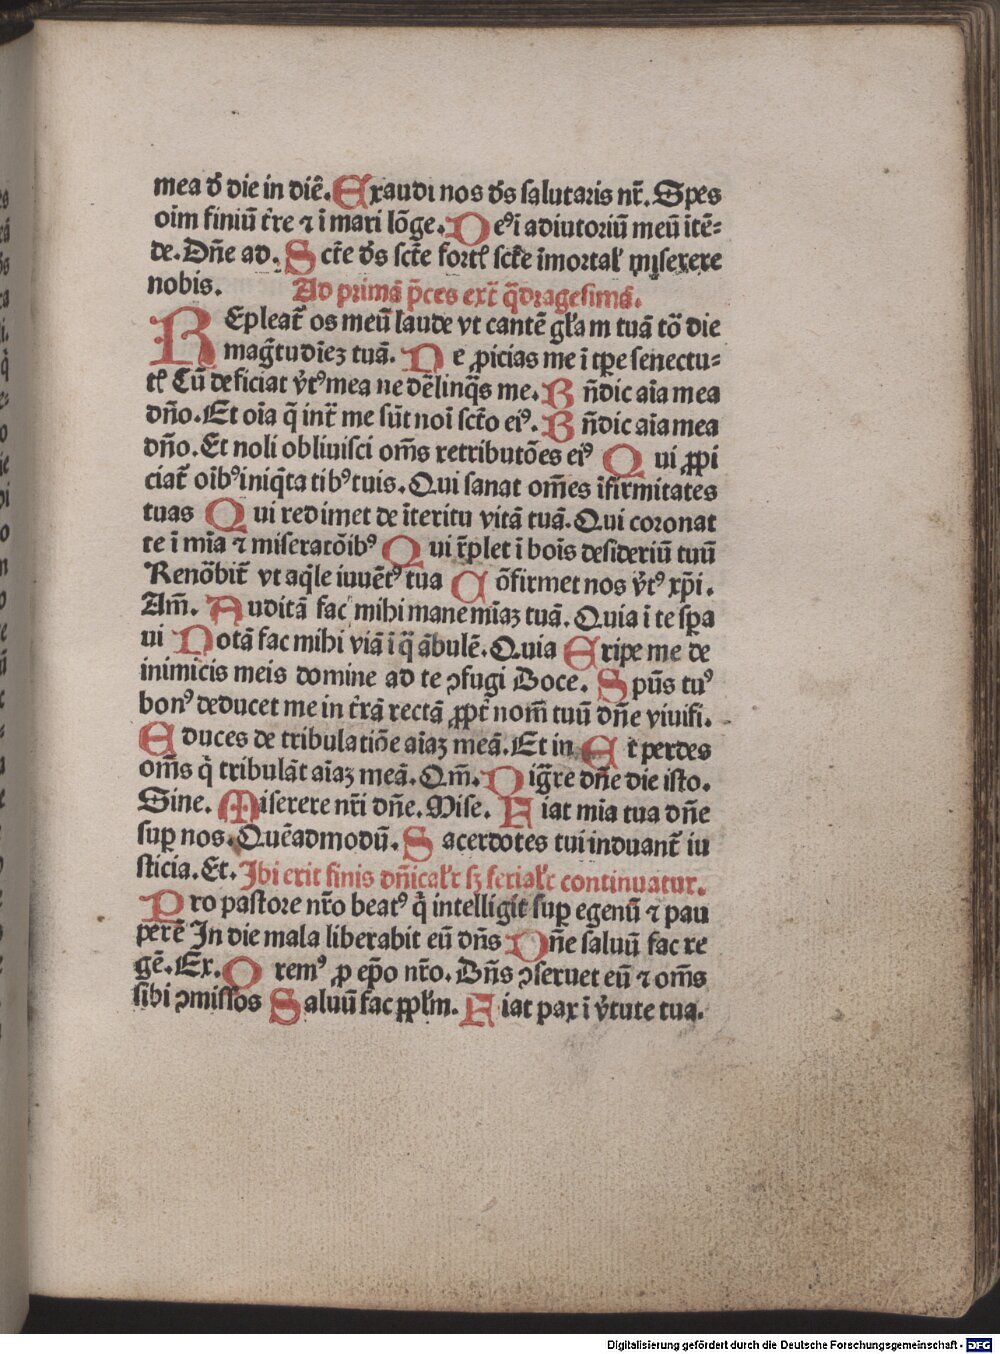 mea d̄ die in diē. Exaudi nos ds̄ salutaris nr̄. Spes
oim finiū tr̄e ⁊ ī mari lōge. Deꝰ ī adiutoriū meū ītē⸗
de. Dn̄e ad. Sctē ds̄ sctē fortꝭ sctē īmortal' miserere
nobis. Ad primā p̄ces ext̄ q̄dragesimā.
REpleat̄ os meū laude vt cantē gl'am tuā tō die
magn̄tudīeꝫ tuā. Ne ꝓicias me ī tꝑe senectu⸗
tꝭ Cū deficiat v̄tꝰ mea ne dēlinq̄s me. Bn̄dic aīa mea
dn̄o. Et oīa q̄ int̄ me sūt noī sctō eiꝰ. Bn̄dic aīa mea
dn̄o. Et noli obliuisci om̄s retributōes eiꝰ Qui ꝓpi
ciat̄ oībꝰ iniq̄ta tibꝰ tuis. Qui sanat om̄es īfirmitates
tuas Qui redimet de īteritu vitā tuā. Qui coronat
te ī mīa ⁊ miseratōibꝰ Qui r̄plet ī boīs desideriū tuū
Renōbit̄ vt aq̄le iuuēt̄ꝰ tua Cōfirmet nos v̄tꝰ xp̄i.
Am̄. Auditā fac mihi mane mīaꝫ tuā. Quia ī te sꝑa
ui Notā fac mihi viā ī q̄ ābulē. Quia Eripe me de
inimicis meis domine ad te ꝯfugi Doce. Spūs tuꝰ
bonꝰ deducet me in tr̄ā rectā ꝓpt̄ nom̄ tuū dn̄e viuifi.
Educes de tribulatiōe aīaꝫ meā. Et in Et perdes
om̄s q̄ tribulāt aīaꝫ meā. Qm̄. Dign̄re dn̄e die isto.
Sine. Miserere nr̄i dn̄e. Mise. Fiat mīa tua dn̄e
suꝑ nos. Quēadmodū. Sacerdotes tui induant̄ iu
sticia. Et. Ibi erit finis dn̄ical'r sꝫ ferial'r continuatur.
Pro pastore nr̄o beatꝰ q̄ intelligit suꝑ egenū ⁊ pau
perē In die mala liberabit eū dn̄s Dn̄e saluū fac re
gē. Ex. Oremꝰ ꝓ ep̄o nr̄o. Dn̄s ꝯseruet eū ⁊ om̄s
sibi ꝯmissos Saluū fac ꝓpl'm. Fiat pax ī v̄tute tua.
Digitalisierung gefördert durch die Deutsche Forschungsgemeinschaft - DFG